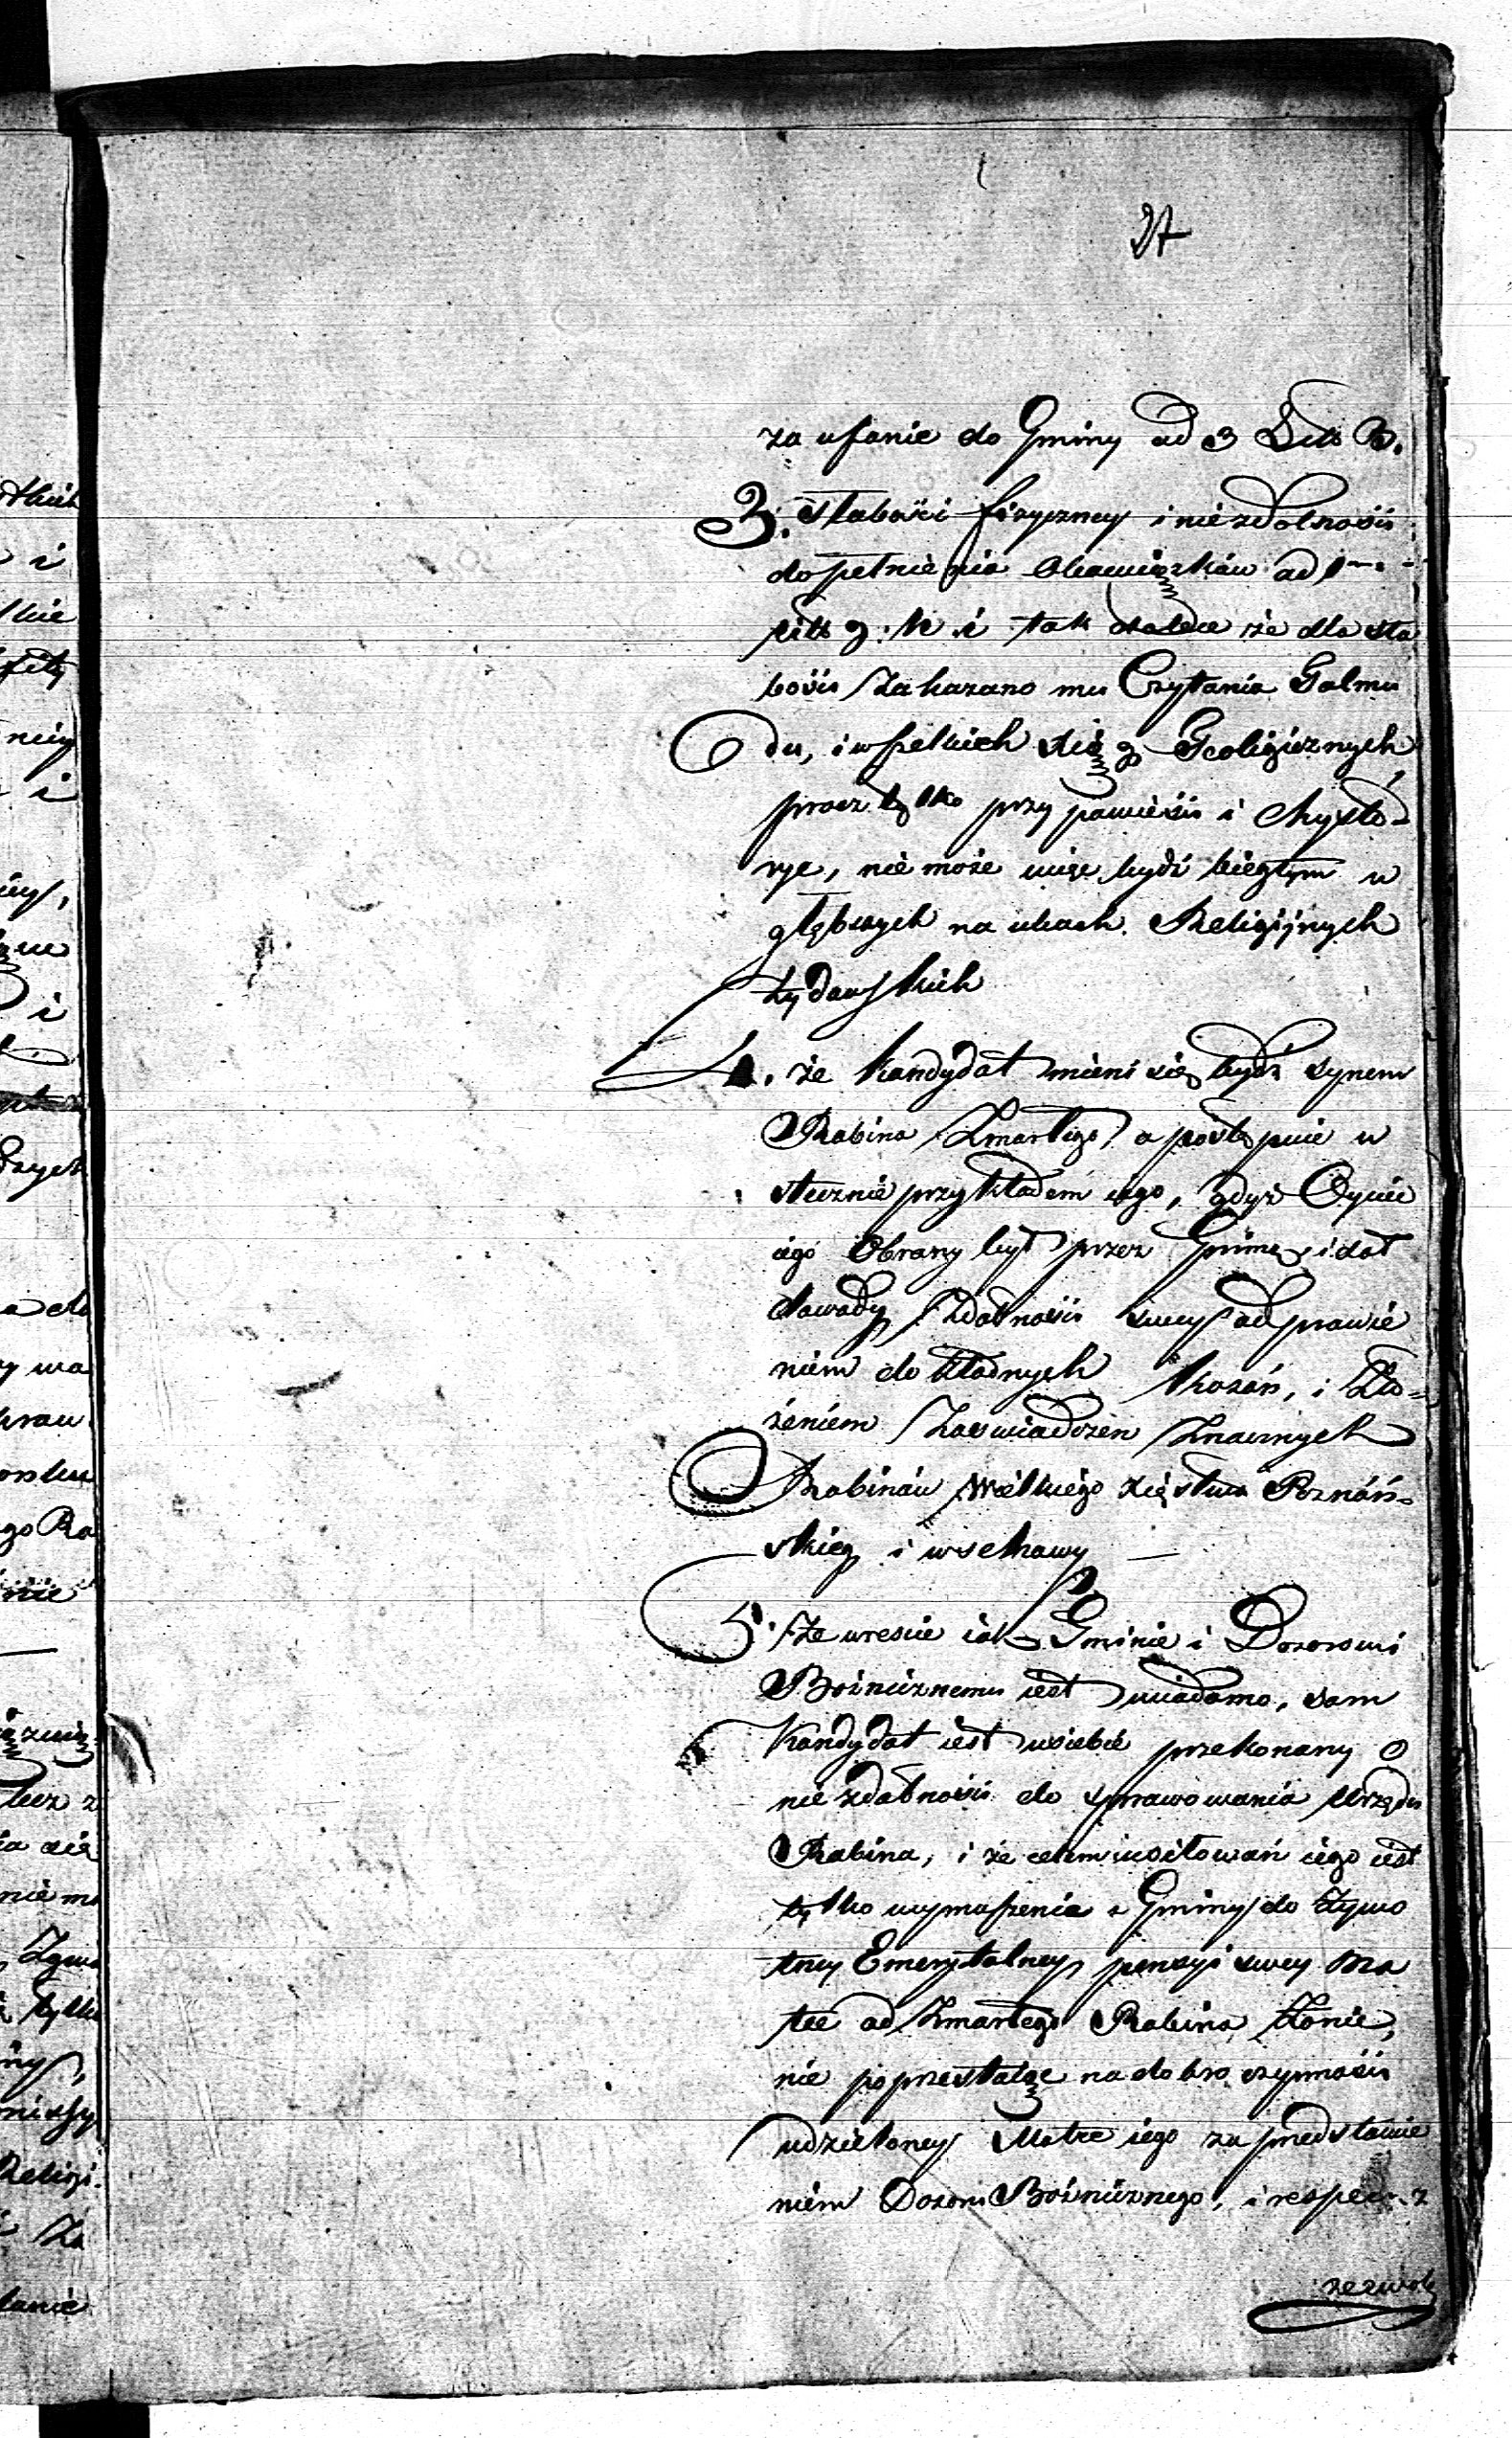 27
za ufanie do Gminy ad 3 Litt B.
3. Słabości fizyczney i niezdolności
dopełnienia Obowiązków ad
Litt g. k i tak dalece że dla sła
bości zakazano mu Czytania Talmu
du, i wszelkich xiąg Teologicznych
procz tylko przypowieści i Chysto-
rye, nie może więc bydź biegłym w
głębszych naukach Religijnych
żydowskich
4. że Kandydat mieni się bydź synem
Rabina Zmarłego, a postępuie w
stecznie przykładem iego, gdyż Oyciec
iego Obrany był przez Gminę, i dał
dowody zdatności swey odprawie
niem dokładnych kazań, i Zło-
żeniem zaswiadczen Znacznych
Rabinów Wielkiego Xięstwa Poznań-
skieg i wschowy
5. że wreście iak Gminie i Dozorowi
Bożniczemu iest wiadomo, sam
Kandydat iest w siebie przekonany o
niezdatności do sprawowania Urzędu
Rabina, i że celem usiłowań iego iest
tylko wymuszenie z Gminy do żywo
tney Emerytalney pensyi swey Ma
tce od Zmarłego Rabina żonie,
nie poprzestaiąc na dobroczynności
udzieloney Matce iego za przedstawie
niem Dozoru Bożniczego, i
zezwole